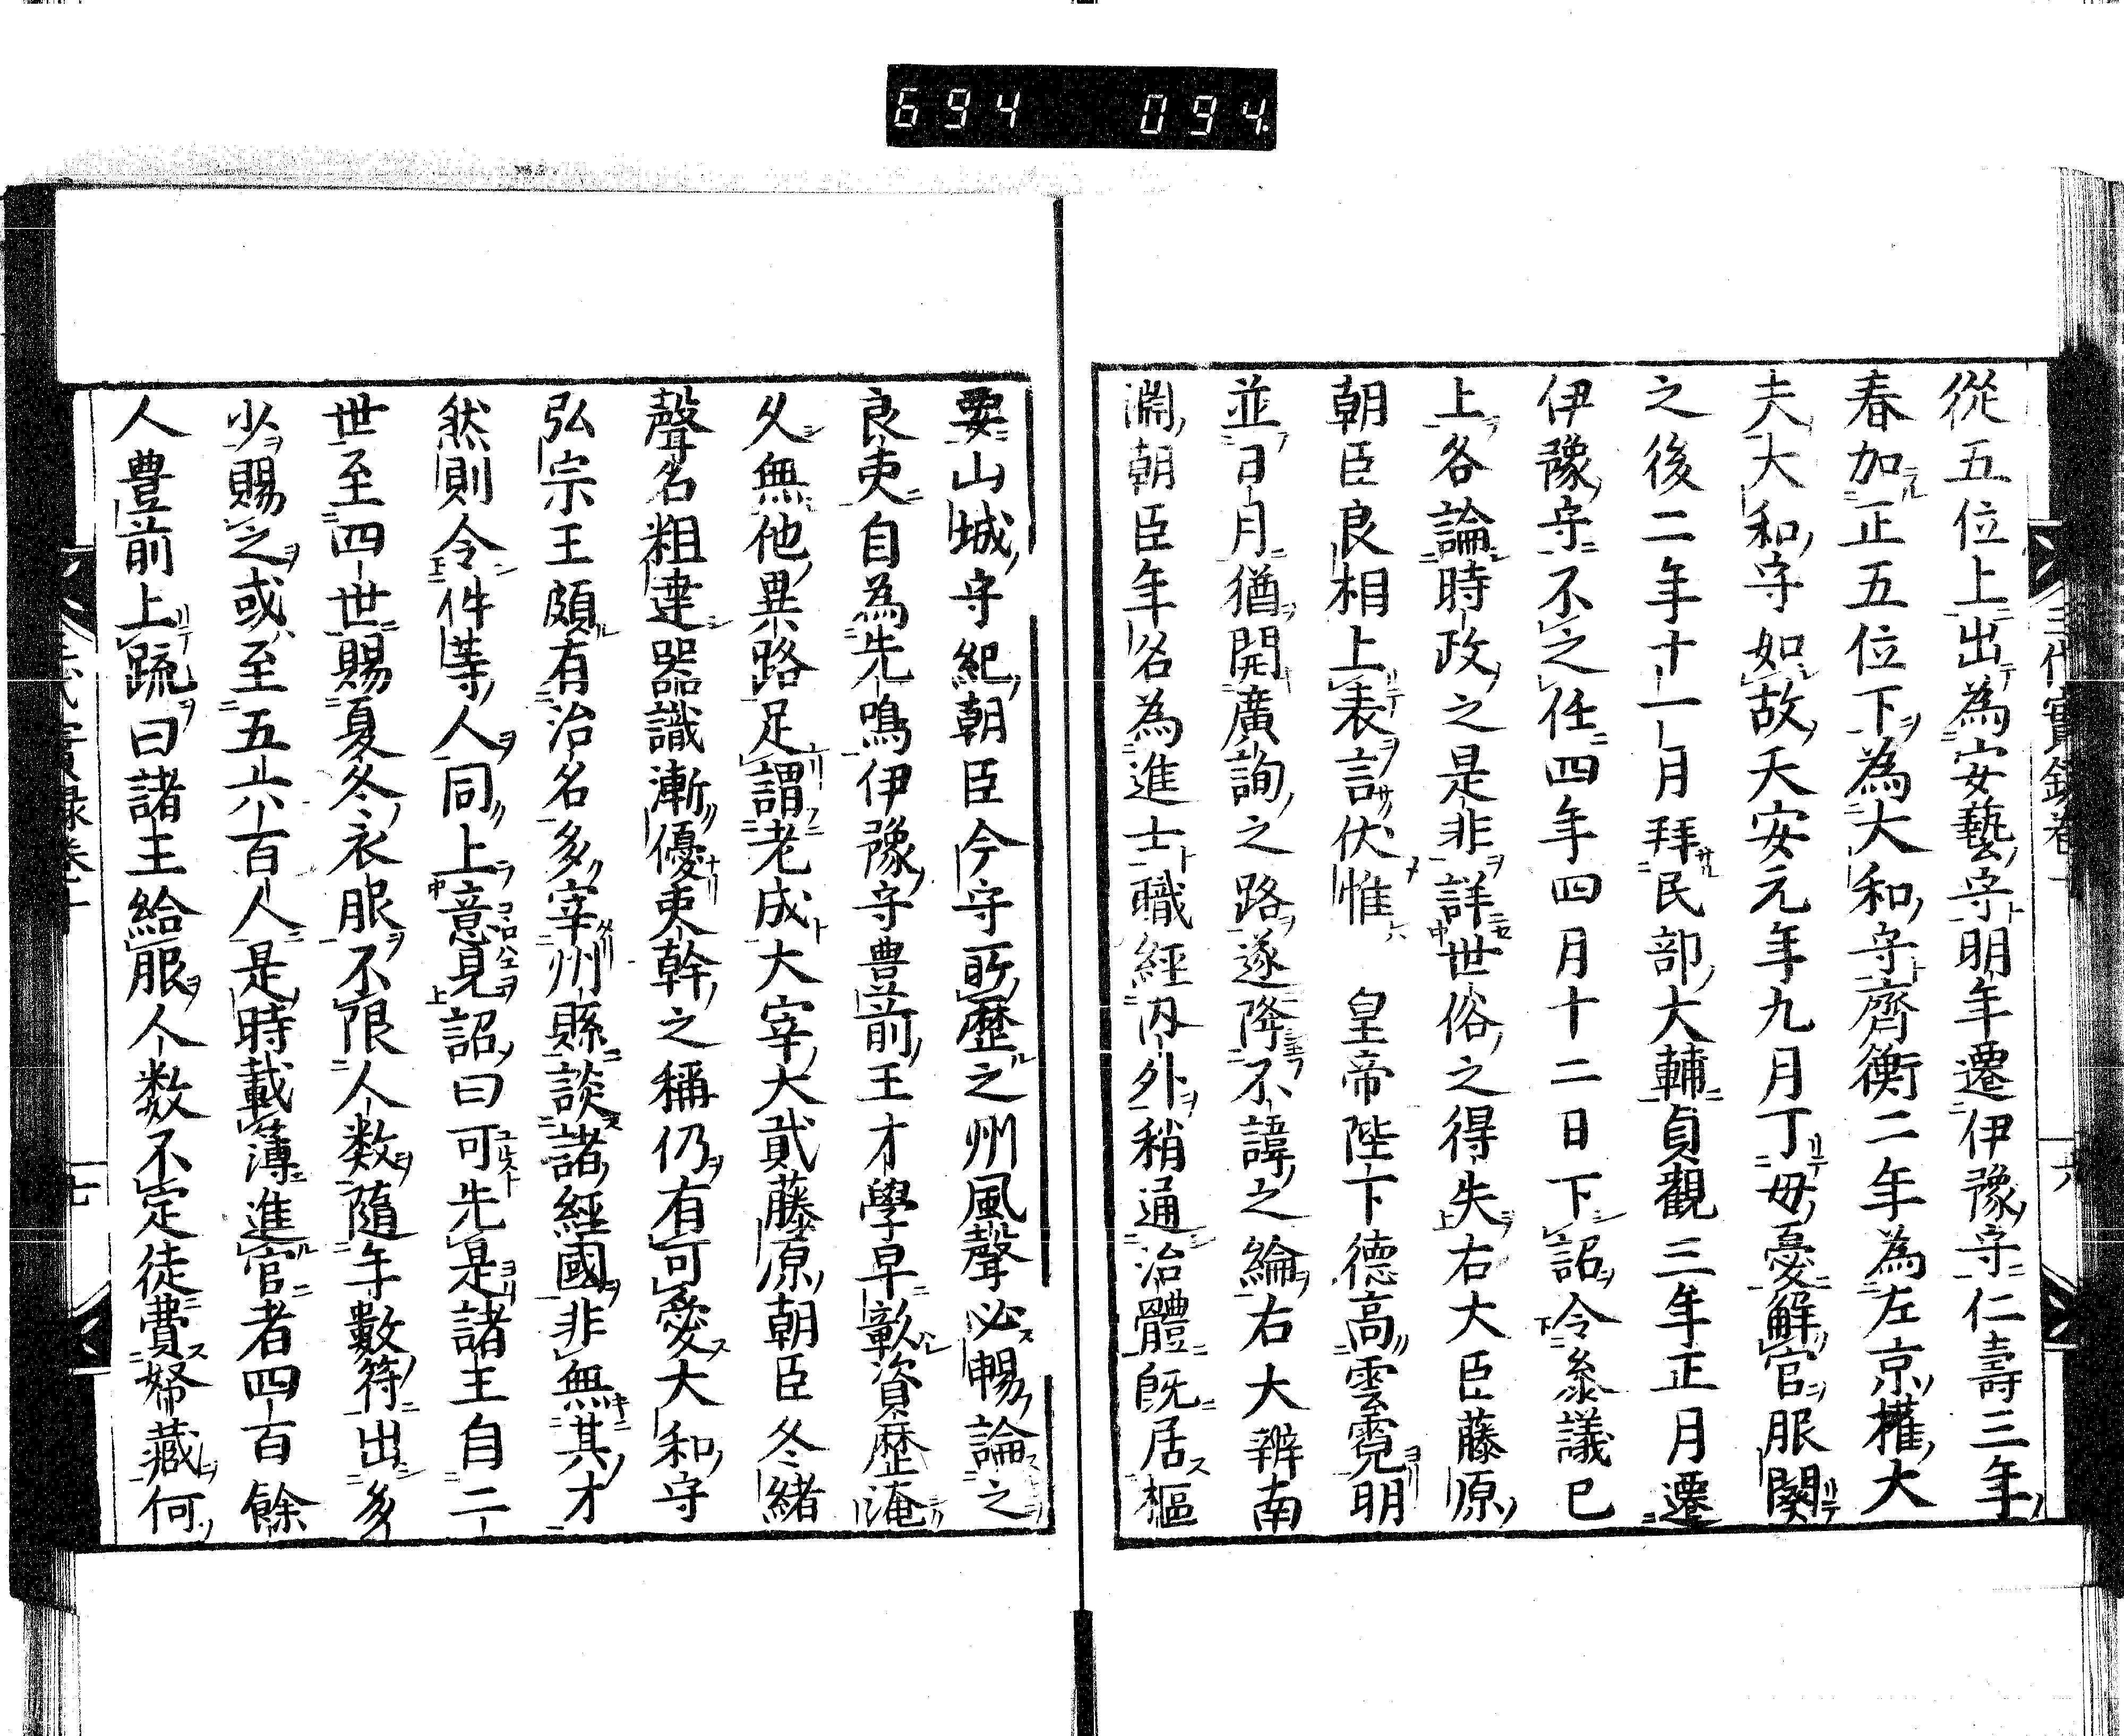 694 094.
從五位上出為安藝守明年遷伊豫守仁壽三年
春加正五位下為大和守齊衡二年為左京權大
夫大和守如故天安元年九月丁母憂解官服闋
之後二年十一月拜民部大輔貞觀三年正月遷
伊豫守不之任四年四月十二日下詔令參議已
上各論時政之是非詳世俗之得失右大臣藤原
朝臣良相上表言伏惟 皇帝陛下德高雲霓明
並日月猶開廣詢之路遂降不諱之綸右大辨南
淵朝臣年名為進士職經内外稍通治體既居樞
要山城守紀朝臣今守所歷之州風聲必暢論之
良吏自為先鳴伊豫守豊前王才學早彰資歷淹
久無他異路足謂老成大宰大貳藤原朝臣冬緒
聲名粗建器識漸優吏幹之稱仍有可愛大和守
弘宗王頗有治名多宰州縣談諸經國非無其才
然則令件等人同上意見詔曰可先是諸王自二
世至四世賜夏冬衣服不限人数隨年數符出多
少賜之或至五六百人是時載簿進官者四百餘
人豊前上疏曰諸王給服人数不定徒費帑藏何